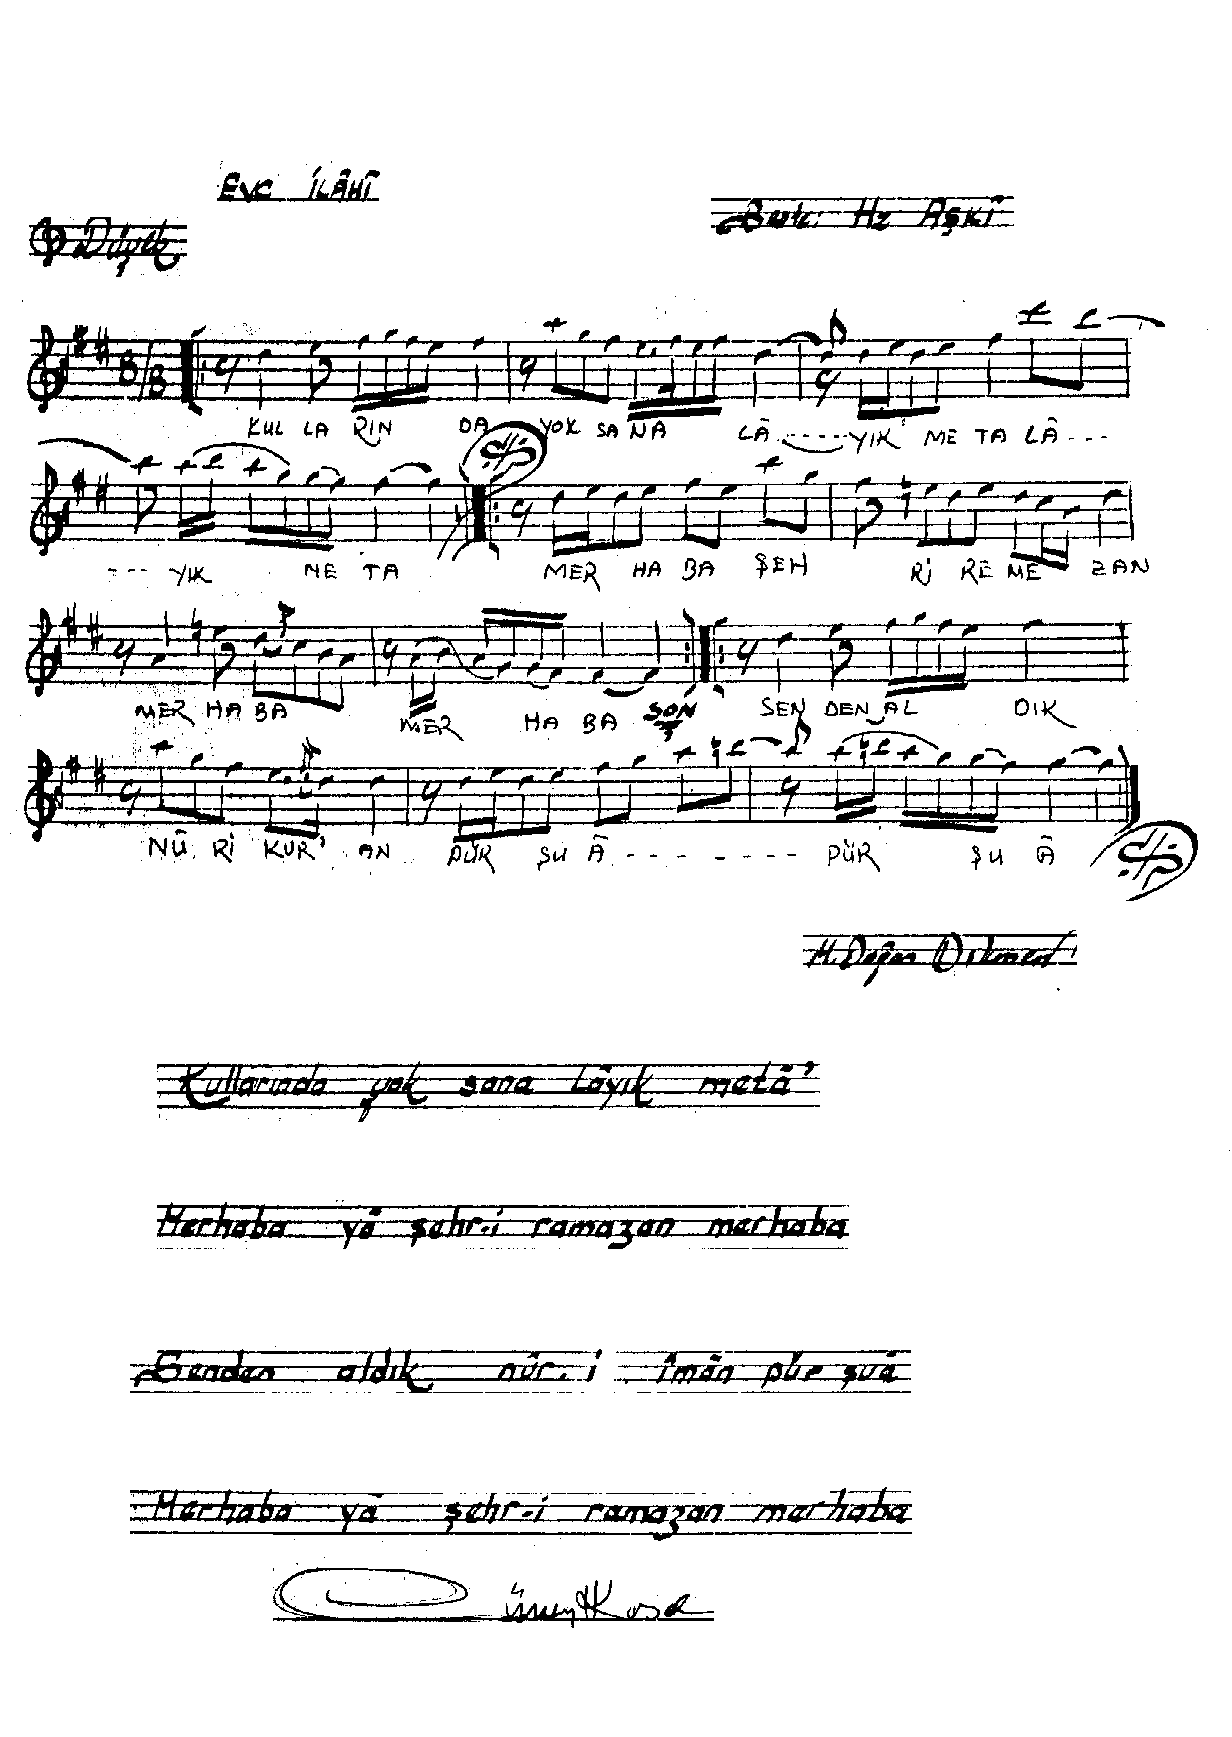 Evc İLÂHÎ
Beste: Hz AŞKÎ
Düyek
8/8
KUL LA RIN DA YOK SA NA LÂ ------ YIK ME TA LÂ ---
--- YIK ME TA MER HA BA ŞEH Rİ RE ME ZAN
MER HA BA MER HA BA SON SEN DEN AL DIK
NÛ Rİ KUR' AN PÜR ŞU Â - - - - - - - - PÜR ŞU Â
H. Doğan Dikmen
Kullarında yok sana Lâyık metâ'
Merhaba yâ şehr-i ramazan merhaba
Senden aldık nûr-i îmân pür şuâ
Merhaba yâ şehr-i ramazan merhaba